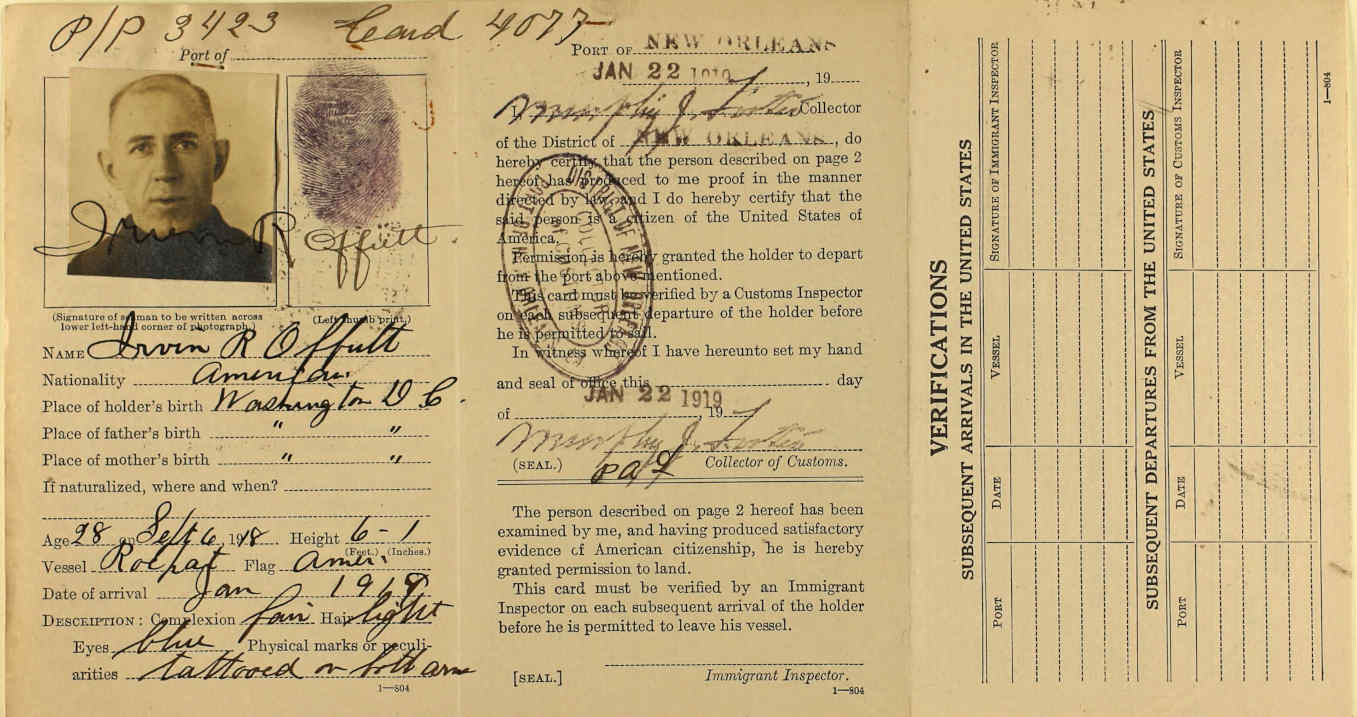 P/P 3423 Card 4077
Port of
Irvin R Offutt.
(Signature of seaman to be written across
lower left-hand corner of photograph.)
(Left thumb print.)
NAME Irvin R Offutt
Nationality American
Place of holder's birth Washington D C.
Place of father's birth " "
Place of mother's birth " "
If naturalized, where and when?
Age 28 on Sept 6, 1918 Height 6-1
(Feet.) (Inches.)
Vessel Flag Amer.
Date of arrival Jan 1919
DESCRIPTION: Complexion fair Hair light
Eyes blue Physical marks or peculi-
arities tattooed on both arm
1—804
PORT OF NEW ORLEANS
JAN 22 1919, 19
I, Collector
of the District of NEW ORLEANS, do
hereby certify that the person described on page 2
hereof has produced to me proof in the manner
directed by law and I do hereby certify that the
said person is a citizen of the United States of
America.
Permission is hereby granted the holder to depart
from the port above mentioned.
This card must be verified by a Customs Inspector
on each subsequent departure of the holder before
he is permitted to sail.
In witness whereof I have hereunto set my hand
and seal of office this day
JAN 22 1919
of , 19
(SEAL.) Collector of Customs.
DISTRICT OF NEW ORLEANS
The person described on page 2 hereof has been
examined by me, and having produced satisfactory
evidence of American citizenship, he is hereby
granted permission to land.
This card must be verified by an Immigrant
Inspector on each subsequent arrival of the holder
before he is permitted to leave his vessel.
[SEAL.] Immigrant Inspector.
1—804
VERIFICATIONS
SUBSEQUENT ARRIVALS IN THE UNITED STATES
PORT DATE VESSEL SIGNATURE OF IMMIGRANT INSPECTOR
SUBSEQUENT DEPARTURES FROM THE UNITED STATES
PORT DATE VESSEL SIGNATURE OF CUSTOMS INSPECTOR
1—804